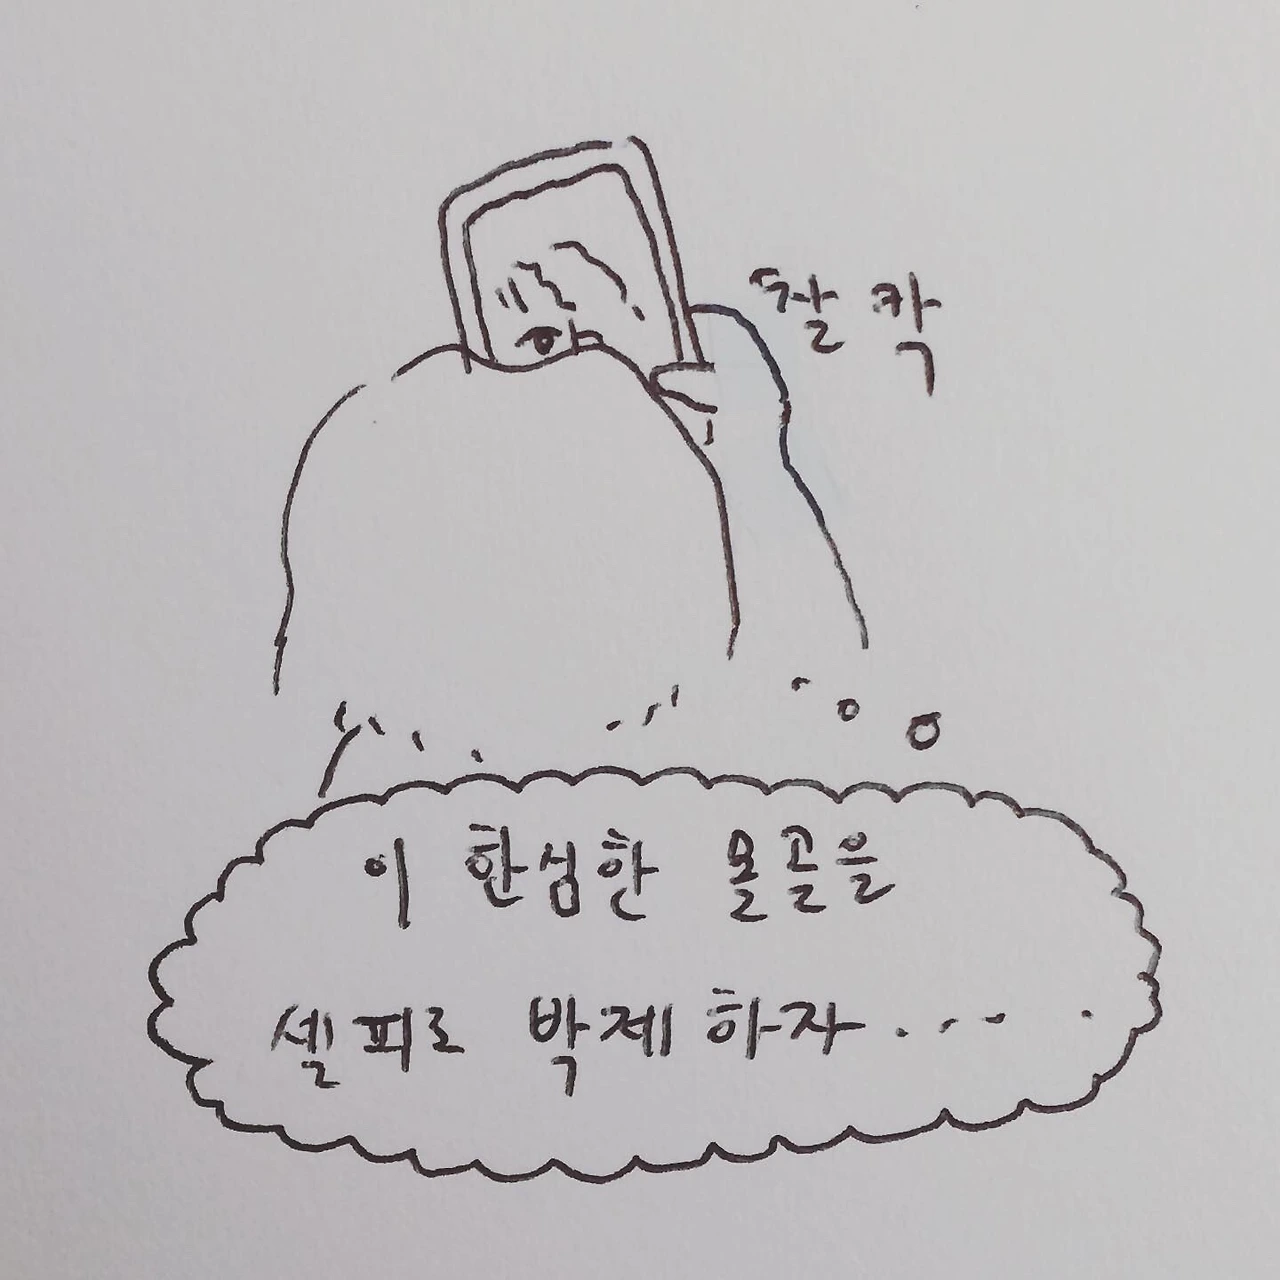 찰칵
이 한심한 몰골을
셀피로 박제하자....